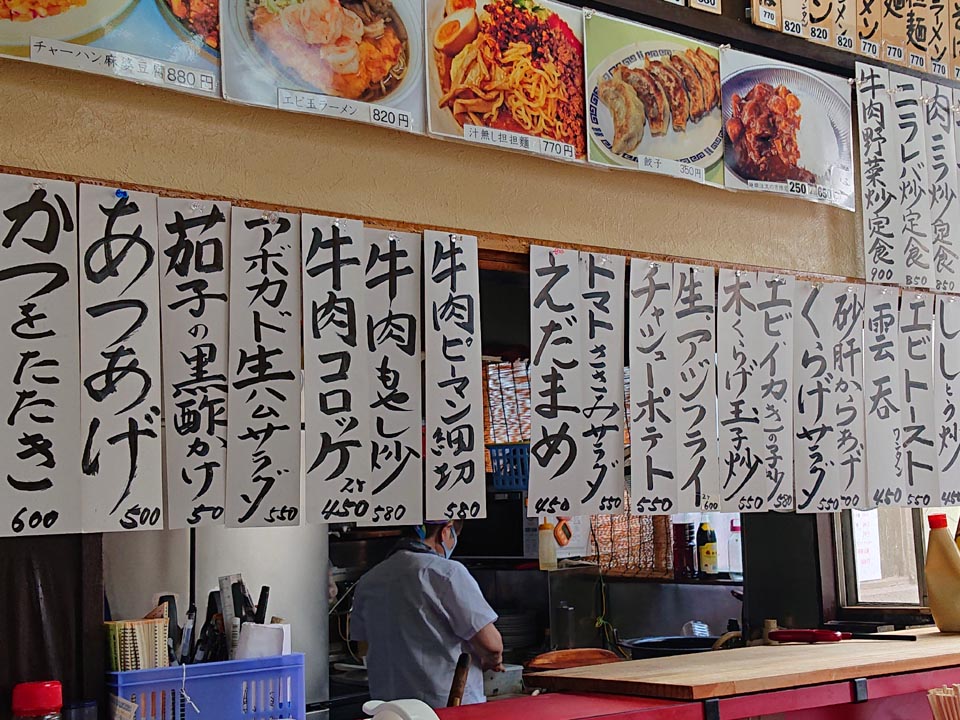 チャーハン麻婆豆腐 880円
エビ玉ラーメン 820円
汁無し担担麺 770円
餃子 350円
250
770
820
820
820
770
770
770
770
牛肉野菜炒定食 900
ニラレバ炒定食 850
肉ニラ炒定食 850
かつをたたき 600
あつあげ 500
茄子の黒酢かけ
アボカド生ハムサラダ 550
牛肉コロッケ 2ケ 450
牛肉もやし炒 580
牛肉ピーマン細切 580
えだまめ 450
トマトささみサラダ 550
チャシューポテト 550
生アジフライ 600
木くらげ玉子炒 550
エビイカきのこ炒 580
くらげサラダ 550
砂肝からあげ
雲呑 ワンタン 450
エビトースト 550
ししとう炒 450